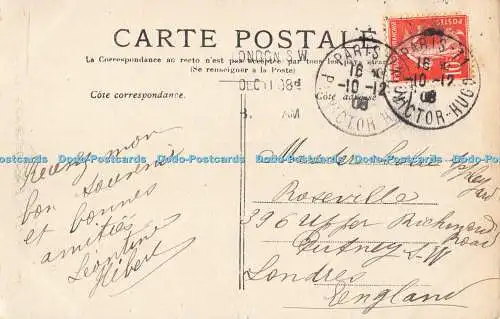 CARTE POSTALE
La Correspondance au recto n'est pas acceptée par tous les pays étrangers
(Se renseigner à la Poste)
Côté correspondance.
Côté adresse
LONDON S.W.
DEC 11 08
AM
PARIS
16
10-12
08
R. VICTOR HUGO
PARIS
16
10-12
08
VICTOR-HUGO
POSTES
10
Recevez mon
bon souvenir
et bonnes
amitiés
Léontine
Hébert
Roseville
396 Upper Richmond
Road
Putney S-W
Londres
England
Dodo-Postcards Dodo-Postcards Dodo-Postcards Dodo-Postcards Dodo-Postcards